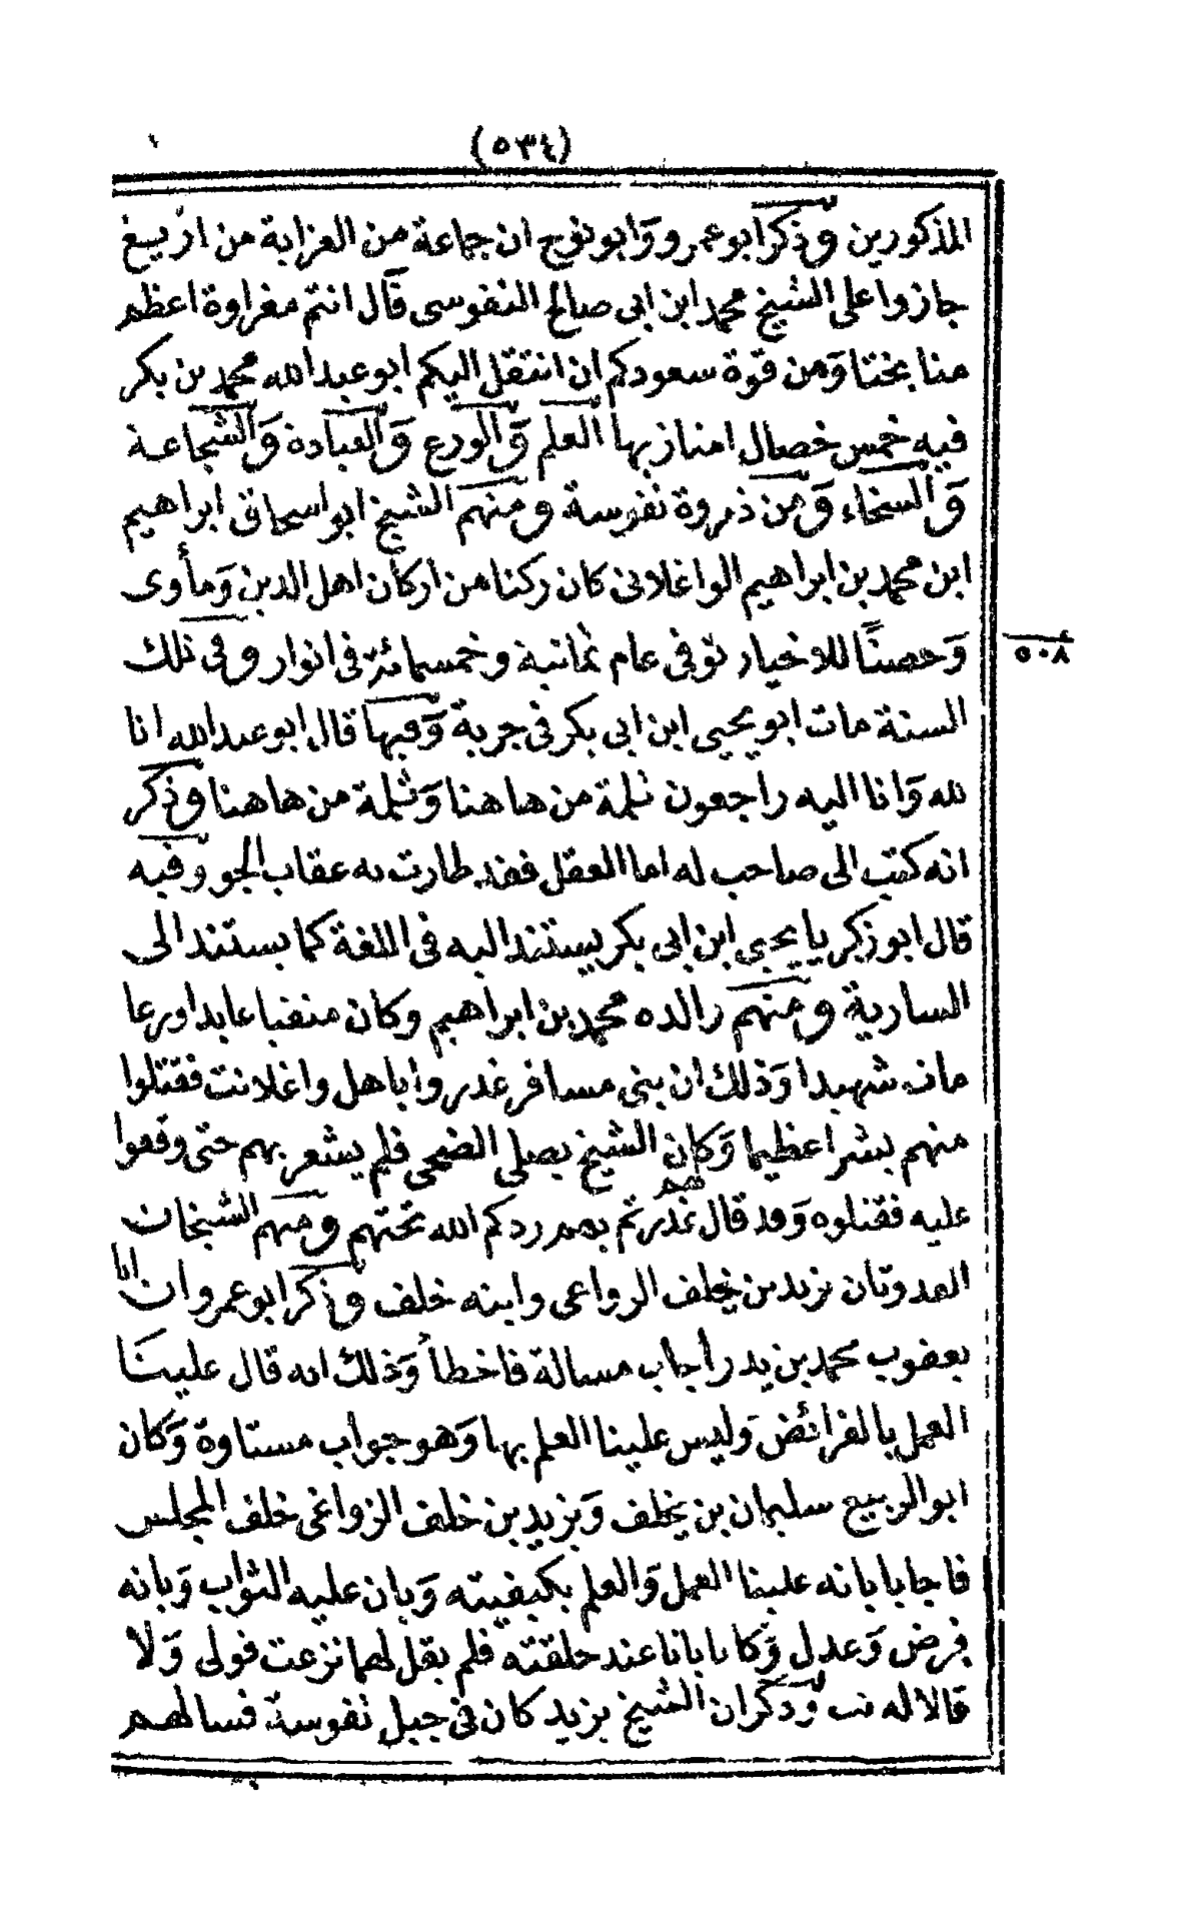 (٥٣٤)
المذكورين وذكر ابو عمرو وَابو نوح ان جماعة من العزابة من اريغ
جازوا على الشيخ محمد ابن ابى صالح النفوسى قال انتم مغراوة اعظم
منا بختا وَمن قوة سعودكم ان انتقل اليكم ابو عبد الله محمد بن بكر
فيه خمس خصال امتاز بها العلم وَالورع وَالعبادة وَالشجاعة
وَالسخاء وَمن ذروة نفوسة ومنهم الشيخ ابو اسحاق ابراهيم
ابن محمد بن ابراهيم الواغلانى كان ركنا من اركان اهل الدين وَمأوى
وَحصنًا للاخيار توفى عام ثمانية وخمسمائة فى انوار وفى ذلك
٥٠٨
السنة مات ابو يحيى ابن ابى بكر فى جربة وَفيها قال ابو عبد الله انا
لله وَانا اليه راجعون ثلمة من هاهنا وَثلمة من هاهنا وذكر
انه كتب الى صاحب له اما العقل فقد طارت به عقاب الجو وفيه
قال ابو زكريا يحيى ابن ابى بكر يستند اليه فى اللغة كما يستند الى
السارية ومنهم والده محمد بن ابراهيم وكان متقيا عابدا ورعا
مات شهيدا وَذلك ان بنى مسافر غدروا باهل واغلانت فقتلوا
منهم بشرا عظيما وَكان الشيخ يصلى الضحى فلم يشعر بهم حتى وقعوا
عليه فقتلوه وَقد قال غدرتم بهم ردكم الله تحتهم ومنهم الشيخان
العدوتان يزيد بن يخلف الزواغى وابنه خلف وذكر ابو عمرو ان ابا
يعقوب محمد بن يدر أجاب مسالة فاخطأ وَذلك انه قال علينا
العمل بالفرائض وَليس علينا العلم بها وَهو جواب مستاوة وَكان
ابو الربيع سليمان بن يخلف وَيزيد بن خلف الزواغى خلف المجلس
فاجابا بانه علينا العمل وَالعلم بكيفيته وَبان عليه الثواب وَبانه
فرض وَعدل وَكانا باتا عند حلقته فلم يقل لهما نزعت قولى وَلا
قالا له تب وَذكر ان الشيخ يزيد كان فى جبل نفوسة فسالهم